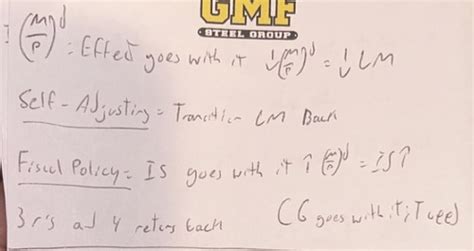 GMF
STEEL GROUP
(M/P)^d : Effect goes with it ↓(M/P)^d = ↓ LM
Self-Adjusting = Transition LM Back
Fiscal Policy = IS goes with it ↑ (M/P)^d = IS↑
3 r's and Y returns back (G goes with it; T